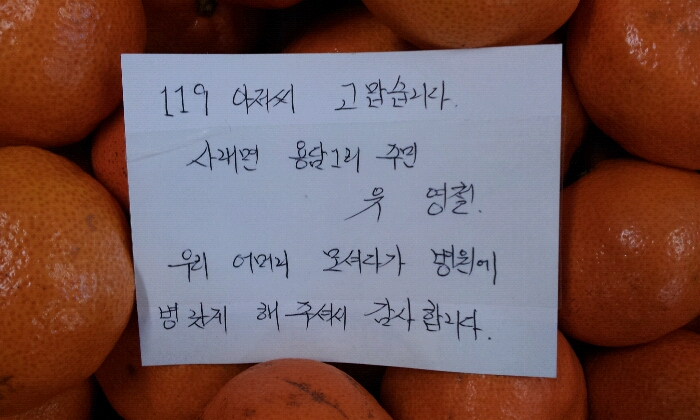 119 아저씨 고맙습니다.
사래면 용담그리 주민
윳 영철.
우리 어머리 모셔다가 병원에
병낳게 해 주셔서 감사합니다.